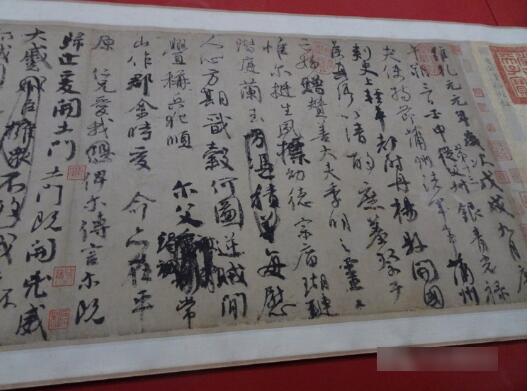 維乾元元年歲次戊戌九月庚
午朔三日壬申第十三叔從父銀青光祿
夫使持節蒲州諸軍事蒲州
刺史上輕車都尉丹楊縣開國
侯真卿以清酌庶羞祭于
亡姪贈贊善大夫季明之靈曰
惟爾挺生夙標幼德宗廟瑚璉
階庭蘭玉方憑積善每慰
人心方期戩穀何圖逆賊閒
釁稱兵犯順爾父竭誠常
山作郡余時受命亦在平
原仁兄愛我俾爾傳言爾既
歸止爰開土門土門既開凶威
大蹙賊臣擁眾不救